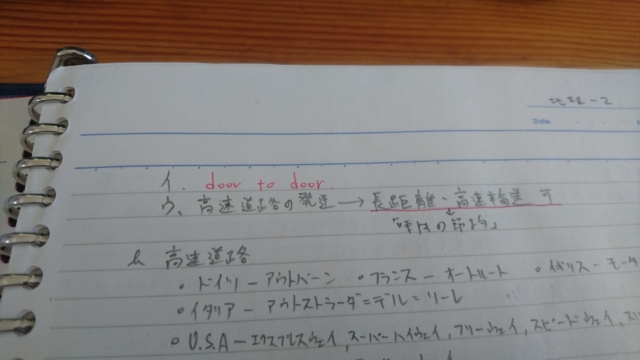 地理-2
Date
イ. door to door.
ウ、高速道路の発達→長距離・高速輸送 可
「時間の節約」
h 高速道路
・ドイツーアウトバーン ・フランスーオートルート ・イギリスーモータ
・イタリアーアウトストラーダ=デル=ソーレ
・U.S.Aーエクスプレスウェイ,スーパーハイウェイ,フリーウェイ,スピードウェイ,